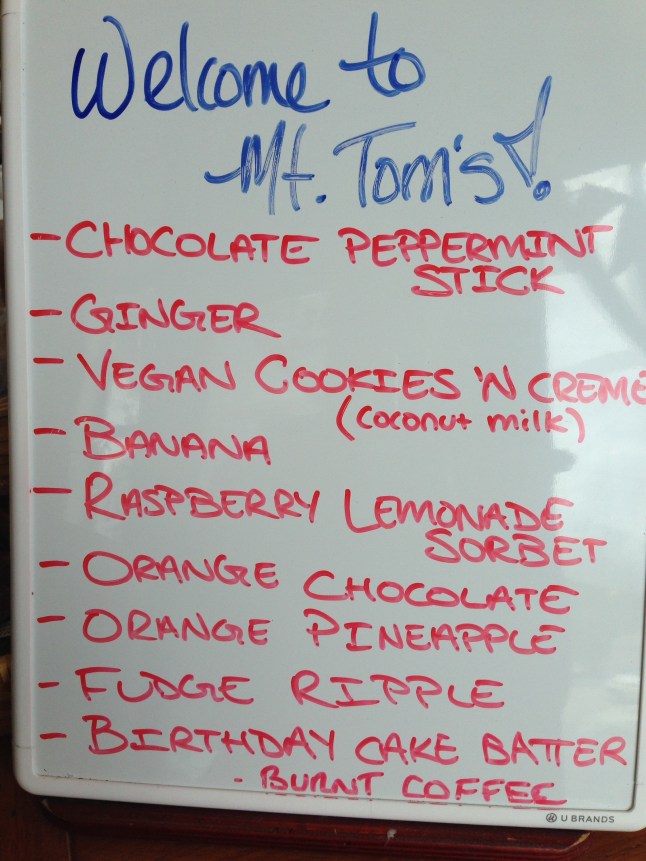 Welcome to
Mt. Tom's!
- CHOCOLATE PEPPERMINT
STICK
- GINGER
- VEGAN COOKIES 'N CREME
(coconut milk)
- BANANA
- RASPBERRY LEMONADE
SORBET
- ORANGE CHOCOLATE
- ORANGE PINEAPPLE
- FUDGE RIPPLE
- BIRTHDAY CAKE BATTER
- BURNT COFFEE
U BRANDS